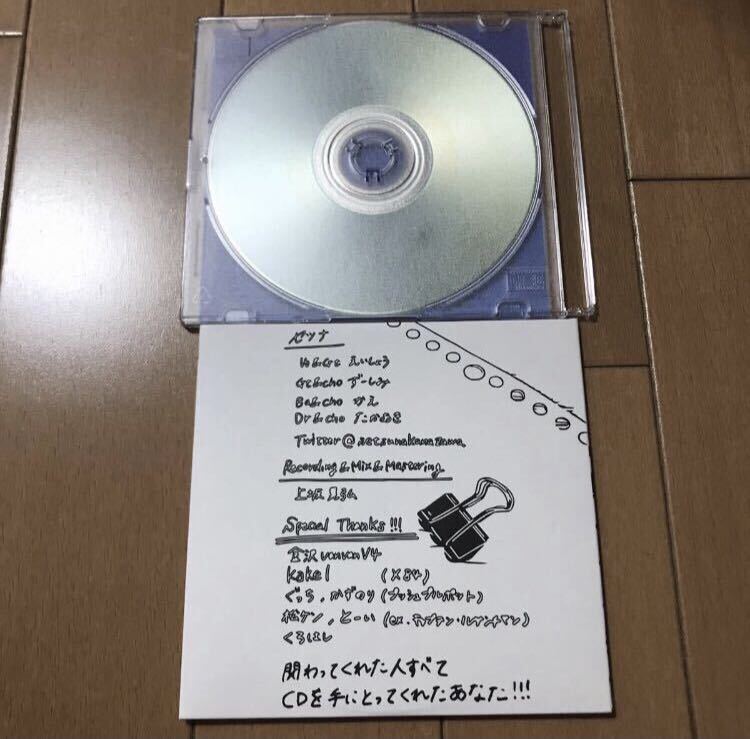 セツナ
Vo&Gt えいしょう
Gt&cho ずーしみ
Ba&cho かえ
Dr&cho たかゆき
Twitter@setsunakanazawa
Recording&Mix&Mastering
上坂
Special Thanks!!!
金沢vanvanV4
kakel (×84)
ぐっち、かずのり(プッシュプルポット)
松ゲン、とーい (ex.
くろはし
関わってくれた人すべて
CDを手にとってくれたあなた!!!